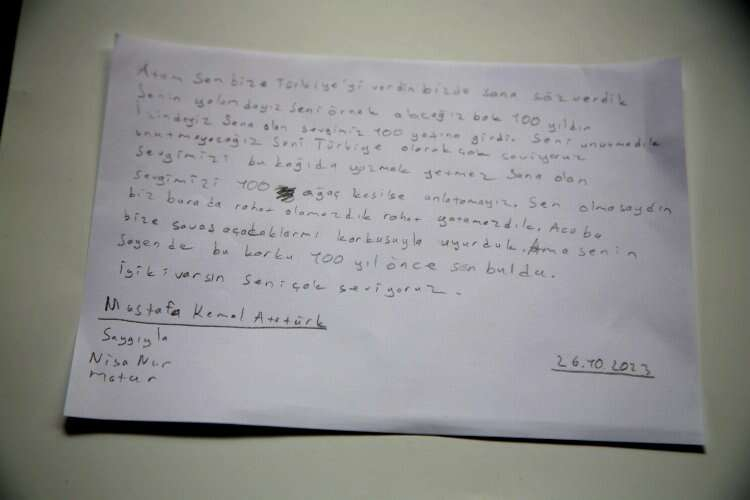 Atam Sen bize Türkiye'yi verdin bizde sana söz verdik
Senin yolundayız seni örnek alacağız bak 100 yıldır
İzindeyiz Sana olan sevgimiz 100 yaşına girdi. Seni unutmadık
unutmayacağız Seni Türkiye olarak çok seviyoruz
Sevgimizi bu kağıda yazmak yetmez Sana olan
sevgimizi 100 ağaç kesilse anlatamayız. Sen olmasaydın
biz burada rahat olamazdık rahat yatamazdık. Acaba
bize savaş açacaklarmı korkusuyla uyurduk. Ama senin
sayende bu korku 100 yıl önce son buldu.
İyikivarsın seni çok seviyoruz.
Mustafa Kemal Atatürk
Saygıyla
Nisa Nur
26.10.2023